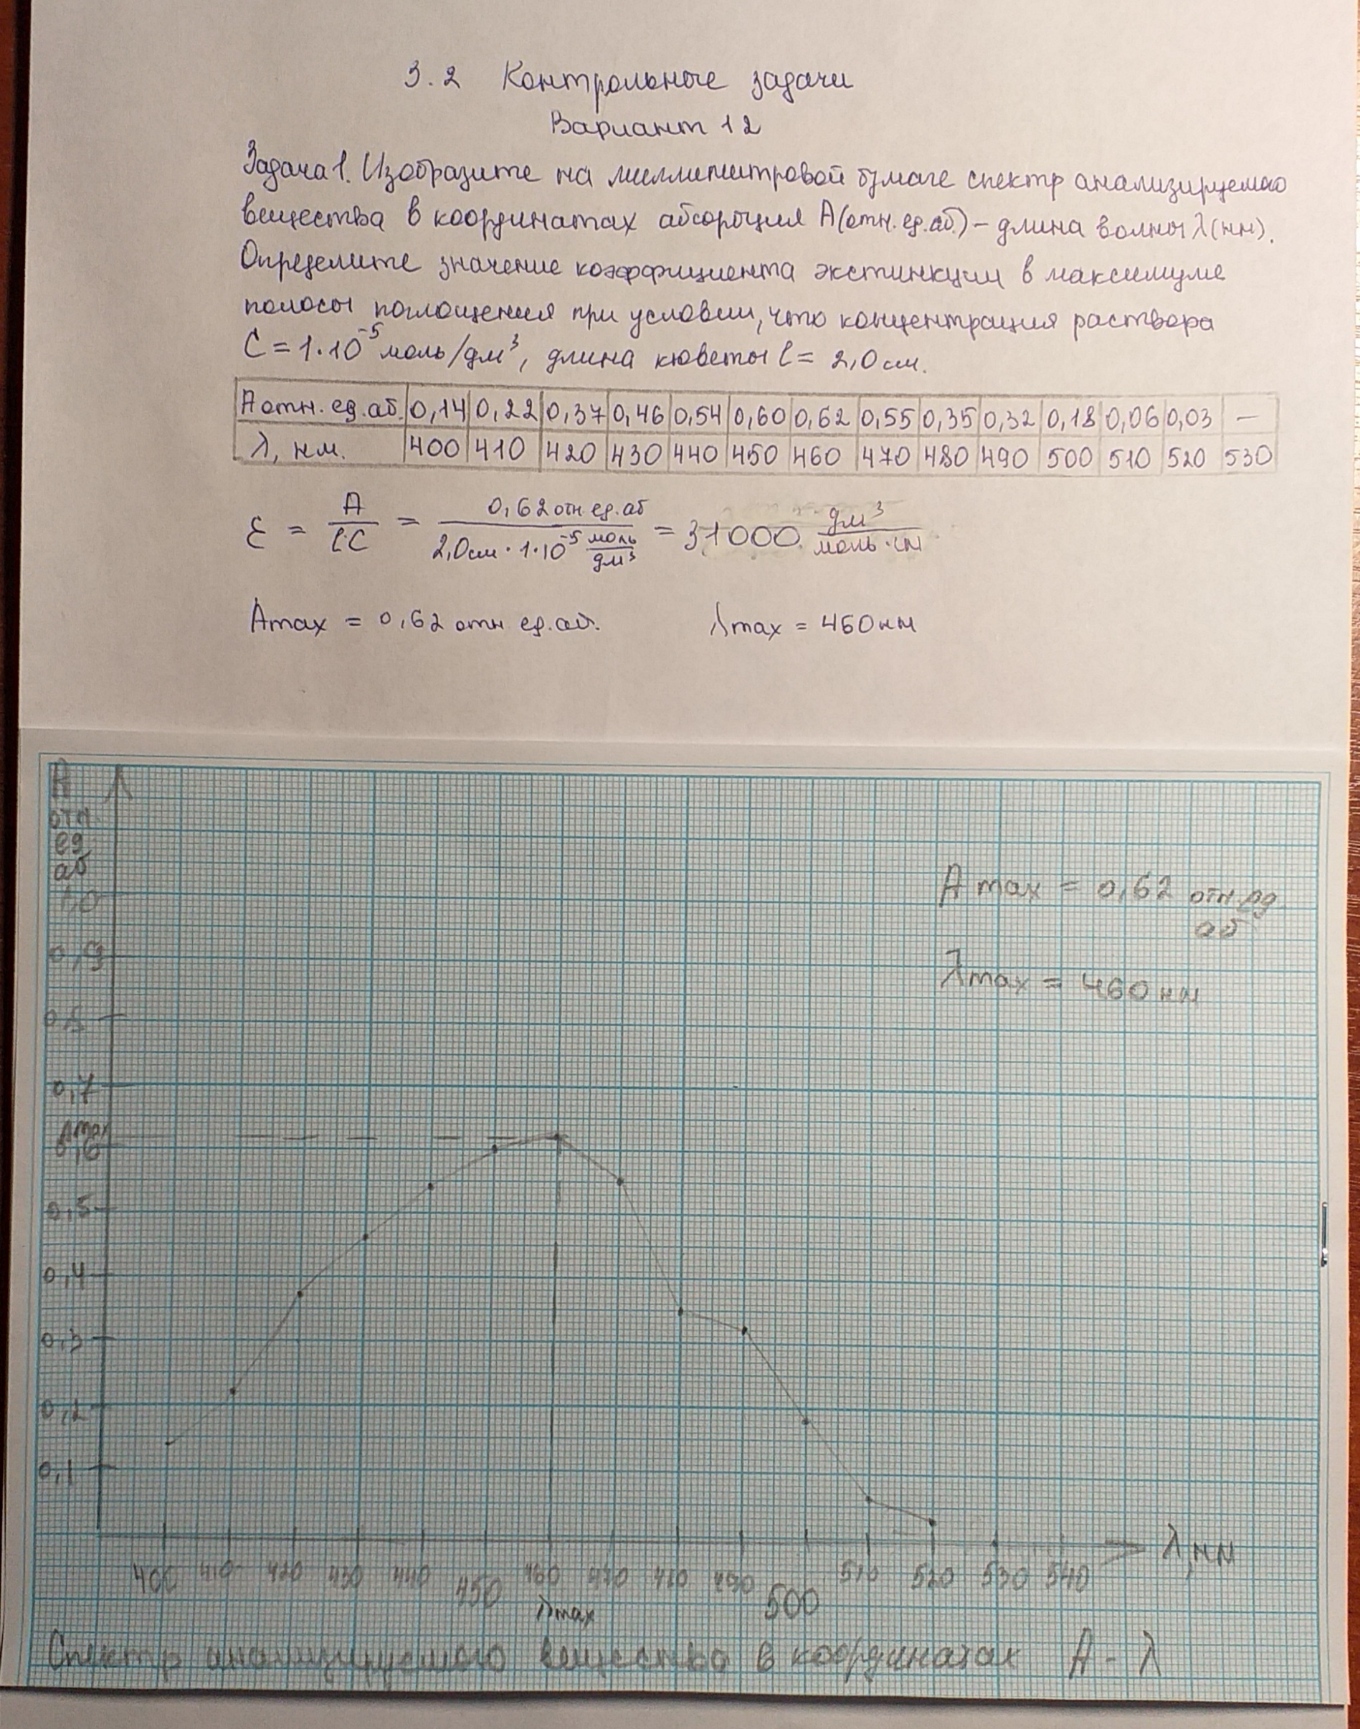 3.2 Контрольные задачи
Вариант 12
Задача 1. Изобразите на миллиметровой бумаге спектр анализируемого
вещества в координатах абсорбция А(отн.ед.аб.) – длина волны λ(нм).
Определите значение коэффициента экстинкции в максимуме
полосы поглощения при условии, что концентрация раствора
C = 1·10⁻⁵ моль/дм³, длина кюветы l = 2,0 см.
А отн. ед. аб. 0,14 0,22 0,37 0,46 0,54 0,60 0,62 0,55 0,35 0,32 0,18 0,06 0,03 —
λ, нм. 400 410 420 430 440 450 460 470 480 490 500 510 520 530
ε = A/(l·C) = 0,62 отн ед. аб / (2,0 см · 1·10⁻⁵ моль/дм³) = 31000 дм³/(моль·см)
Amax = 0,62 отн ед. аб. λmax = 460 нм
А
отн.
ед
аб
1,0
A max = 0,62 отн.ед.
аб
0,9
λmax = 460 нм
0,8
0,7
Amax
0,6
0,5
0,4
0,3
0,2
0,1
λ, нм
400 410 420 430 440 450 460 470 490 500 510 520 530 540
λmax
Спектр анализируемого вещества в координатах А - λ